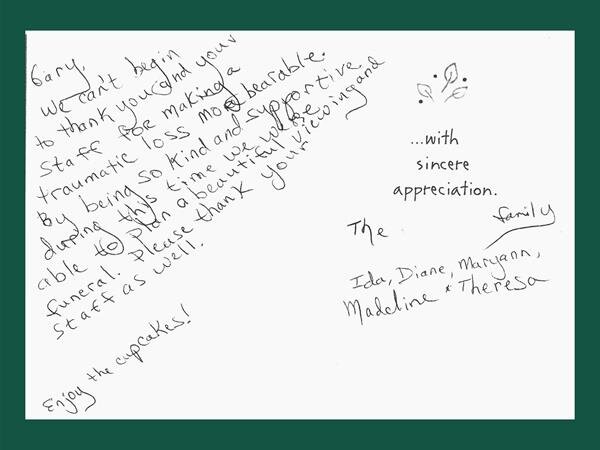 Gary,
We can't begin
to thank you and your
staff for making a
traumatic loss more bearable.
By being so kind and supportive
during this time we were
able to plan a beautiful viewing and
funeral. Please thank your
staff as well.
Enjoy the cupcakes!
...with
sincere
appreciation.
The family
Ida, Diane, Maryann,
Madeline & Theresa